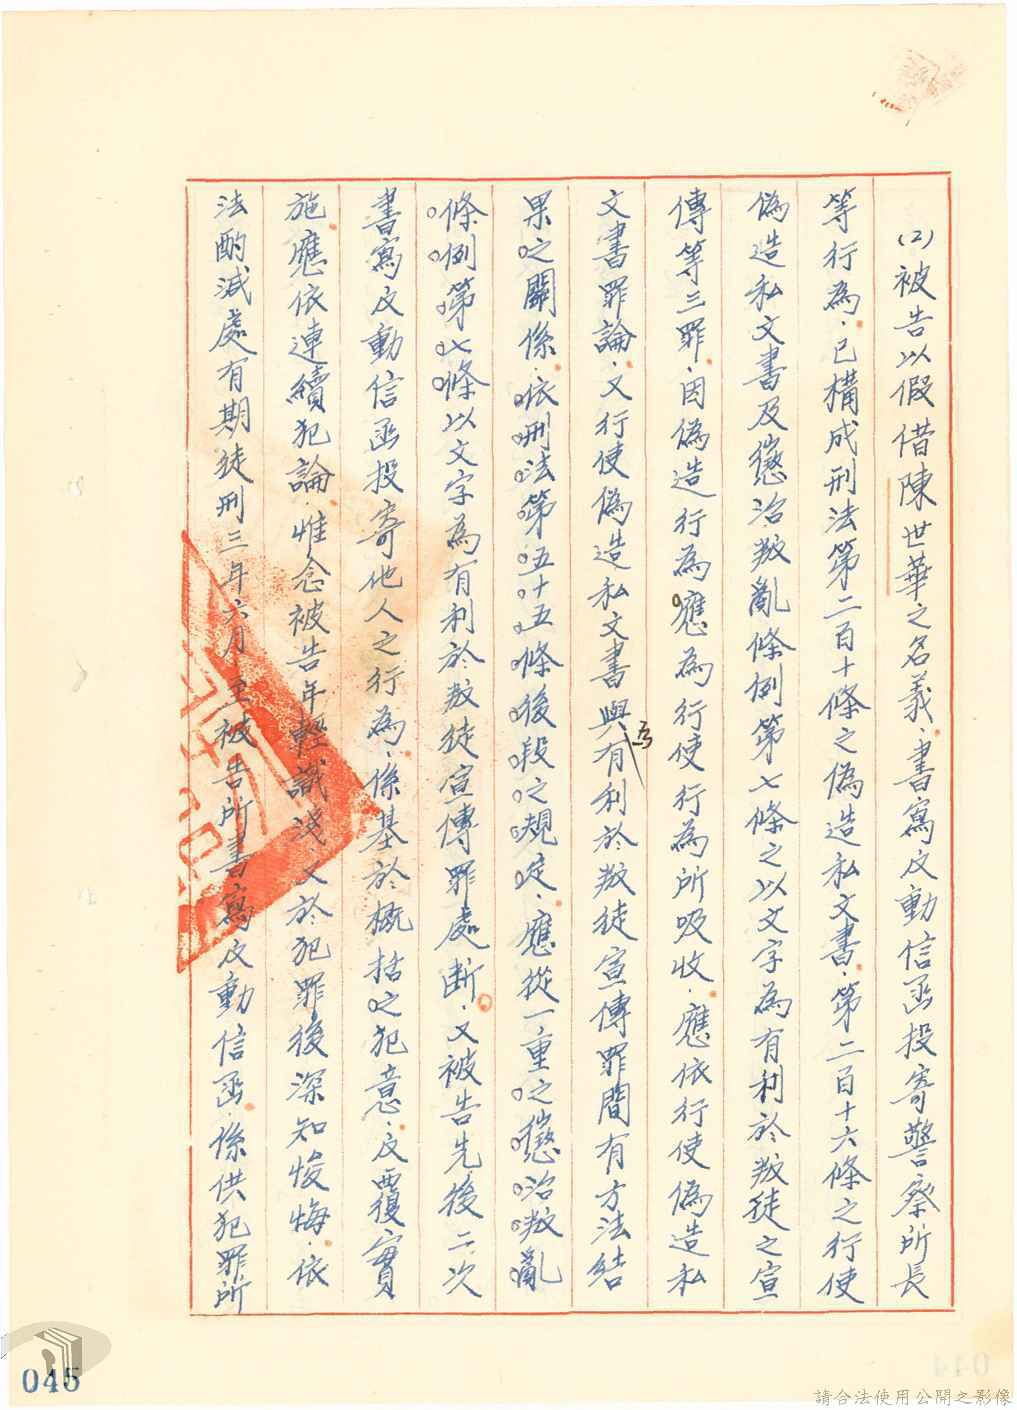 (2)被告以假借陳世華之名義、書寫反動信函投寄警察所長
等行為、已構成刑法第二百十條之偽造私文書、第二百十六條之行使
偽造私文書及懲治叛亂條例第七條之以文字為有利於叛徒之宣
傳等三罪、因偽造行為應為行使行為所吸收、應依行使偽造私
文書罪論、又行使偽造私文書與為有利於叛徒宣傳罪間有方法結
果之關係、依刑法第五十五條後段之規定、應從一重之懲治叛亂
條例第七條以文字為有利於叛徒宣傳罪處斷、又被告先後二次
書寫反動信函投寄他人之行為、係基於概括之犯意、反覆實
施應依連續犯論、惟念被告年輕識淺、又於犯罪後深知悛悔、依
法酌減處有期徒刑三年六月、至被告所書寫反動信函、係供犯罪所
045
請合法使用公開之影像